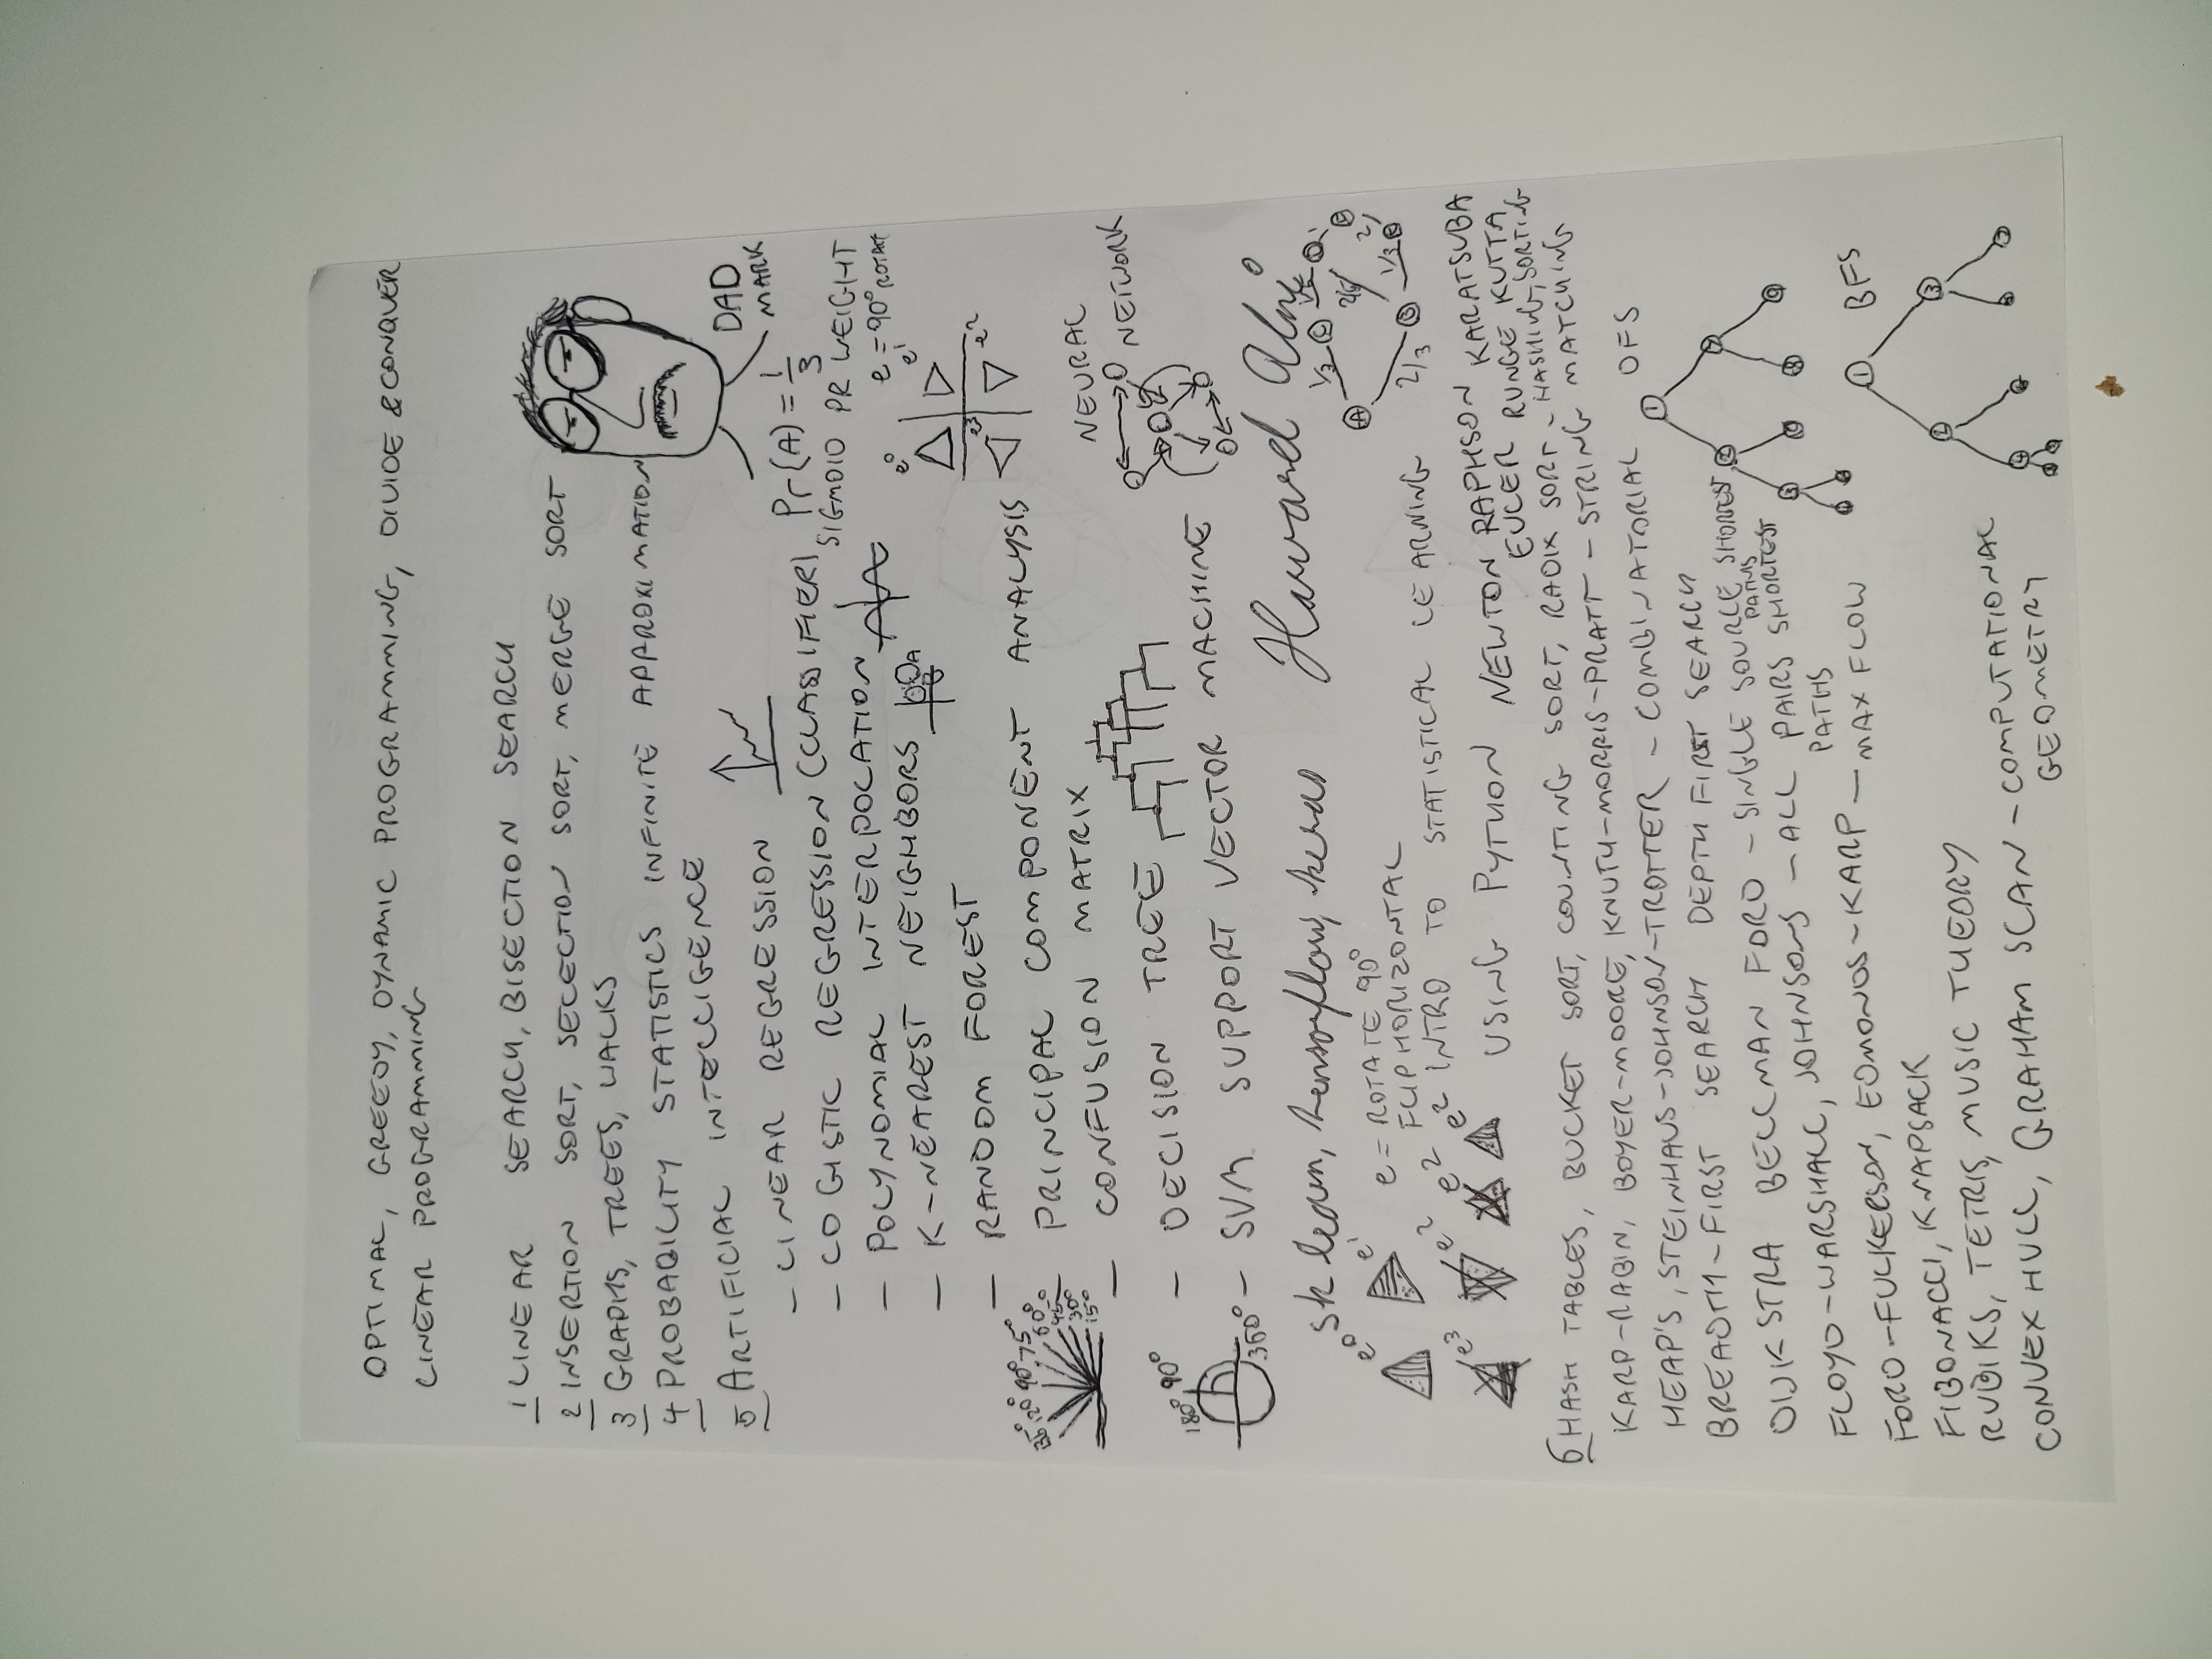 OPTIMAL, GREEDY, DYNAMIC PROGRAMMING, DIVIDE & CONQUER
LINEAR PROGRAMMING
1 LINEAR SEARCH, BISECTION SEARCH
2 INSERTION SORT, SELECTION SORT, MERGE SORT
3 GRAPHS, TREES, WALKS
4 PROBABILITY STATISTICS INFINITE APPROXIMATION
5 ARTIFICIAL INTELLIGENCE
DAD
MARK
- LINEAR REGRESSION
Pr(A) = 1/3
- LOGISTIC REGRESSION (CLASSIFIER)
SIGMOID PR WEIGHT
- POLYNOMIAL INTERPOLATION
e = 90° ROTATE
- K-NEAREST NEIGHBORS
A
B
e⁰ e¹
e³ e²
- RANDOM FOREST
- PRINCIPAL COMPONENT ANALYSIS
135° 120° 90° 75° 60° 45° 30° 15°
- CONFUSION MATRIX
NEURAL
NETWORK
- DECISION TREE
180° 90°
360°
- SVM SUPPORT VECTOR MACHINE
sk learn, tensorflow, keras
Harvard Alni
A 1/3 C 1/6 D 1
2/3 B 1/3 2
e⁰ e¹
e = ROTATE 90°
FLIP HORIZONTAL
e³ e² e² e²
INTRO TO STATISTICAL LEARNING
USING PYTHON
NEWTON RAPHSON KARATSUBA
EULER RUNGE KUTTA
6 HASH TABLES, BUCKET SORT, COUNTING SORT, RADIX SORT - HASHING, SORTING
KARP-RABIN, BOYER-MOORE, KNUTH-MORRIS-PRATT - STRING MATCHING
HEAP'S, STEINHAUS-JOHNSON-TROTTER - COMBINATORIAL
DFS
1
BREADTH-FIRST SEARCH DEPTH FIRST SEARCH
DIJKSTRA BELLMAN FORD - SINGLE SOURCE SHORTEST
PATHS
FLOYD-WARSHALL, JOHNSONS - ALL PAIRS SHORTEST
PATHS
FORD-FULKERSON, EDMONDS-KARP - MAX FLOW
BFS
1
2 3
FIBONACCI, KNAPSACK
RUBIKS, TETRIS, MUSIC THEORY
CONVEX HULL, GRAHAM SCAN - COMPUTATIONAL
GEOMETRY